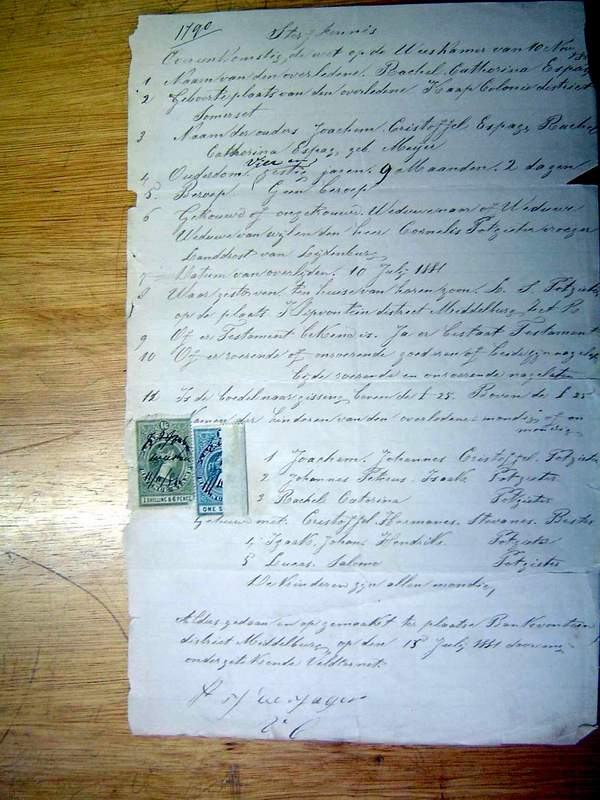 1790
Sterfkennis
Overeenkomstig de wet op de Weeskamer van 10 Nov
1 Naam van den overledene. Rachel Catharina Espag
2 Geboorteplaats van den overledene Kaap Colonie district
Somerset
3 Naam der ouders Joachem Cristoffel Espag, Rachel
Catharina Espag, geb Meijer
4 Ouderdom. Vier en jaren. 9 Maanden. 2 dagen
5. Beroep Geen beroep
6 Gehouwd of ongehouwd. Weduwenaar of Weduwe
Weduwe van wijlen den heer Cornelis Potgieter vroeger
Landdrost van Lijdenburg
7 Datum van overlijden. 10 Julij 1881
8 Waar gestorven. ten huise van haren zoon. L. S. Potgieter
op de plaats Klipvontein district Middelburg
9 Of er Testament bekend is. Ja er bestaat Testament
10 Of er roerende of onroerende goederen of beide zijn nagelaten
beide roerende en onroerende nagelaten
12 Is de boedel naar gissing boven de £ 25. Boven de £ 25
Namen der kinderen van den overledene mondig of on
mondig
1 Joachem. Johannes Cristoffel. Potgieter
2 Johannes Petrus. Isaak Potgieter
3 Rachel Catorina Potgieter
Gehuwd met. Cristoffel. Hermanes. Stevanes. Bester
4 Izaak Johan. Hendrik Potgieter
5 Lucas. Salomo Potgieter
De kinderen zijn allen mondig
Aldus gedaan en op gemaakt ter plaatse Bankvontein
district Middelburg op den 15 Julij 1881 door mij
ondergetekende Veldkornet
de Jager
1 SHILLING & 6 PENCE
ONE S